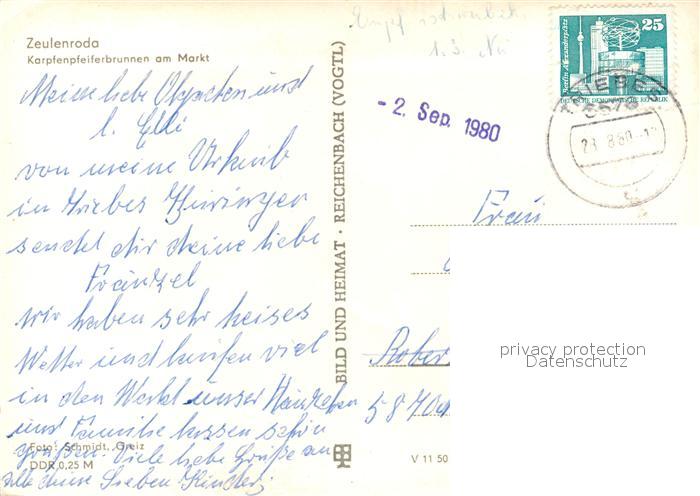 Zeulenroda
Karpfenpfeiferbrunnen am Markt
Meine liebe und
l. Elli
von meine Urlaub
in Triebes
sendet dir deine liebe
Fränzel
wir haben sehr heises
Wetter und laufen viel
in den Wald unser
und Familie lassen schön
grüßen. Viele liebe Grüße an
alle deine lieben Kinder.
Foto: Schmidt, Greiz
DDR 0,25 M
BILD UND HEIMAT · REICHENBACH (VOGTL)
V 11 50
1.3.
- 2. Sep. 1980
Berlin, Alexanderplatz
25
DEUTSCHE DEMOKRATISCHE REPUBLIK
Frau
Rober
privacy protection
Datenschutz